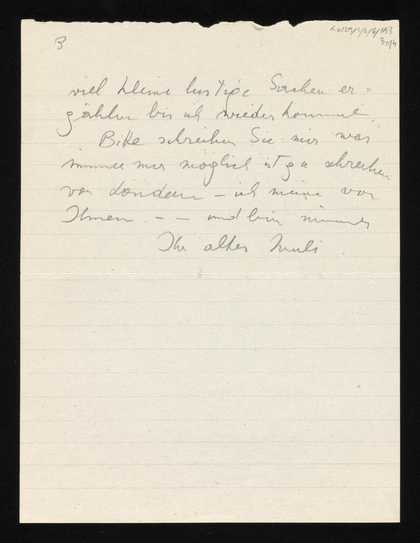 3
viel kleine lustige Sachen er-
zählen bis ich wieder komme.
Bitte schreiben Sie mir was
immer nur möglich ist zu schreiben
von London – ich meine von
Ihnen – – und bin immer
Ihr alter